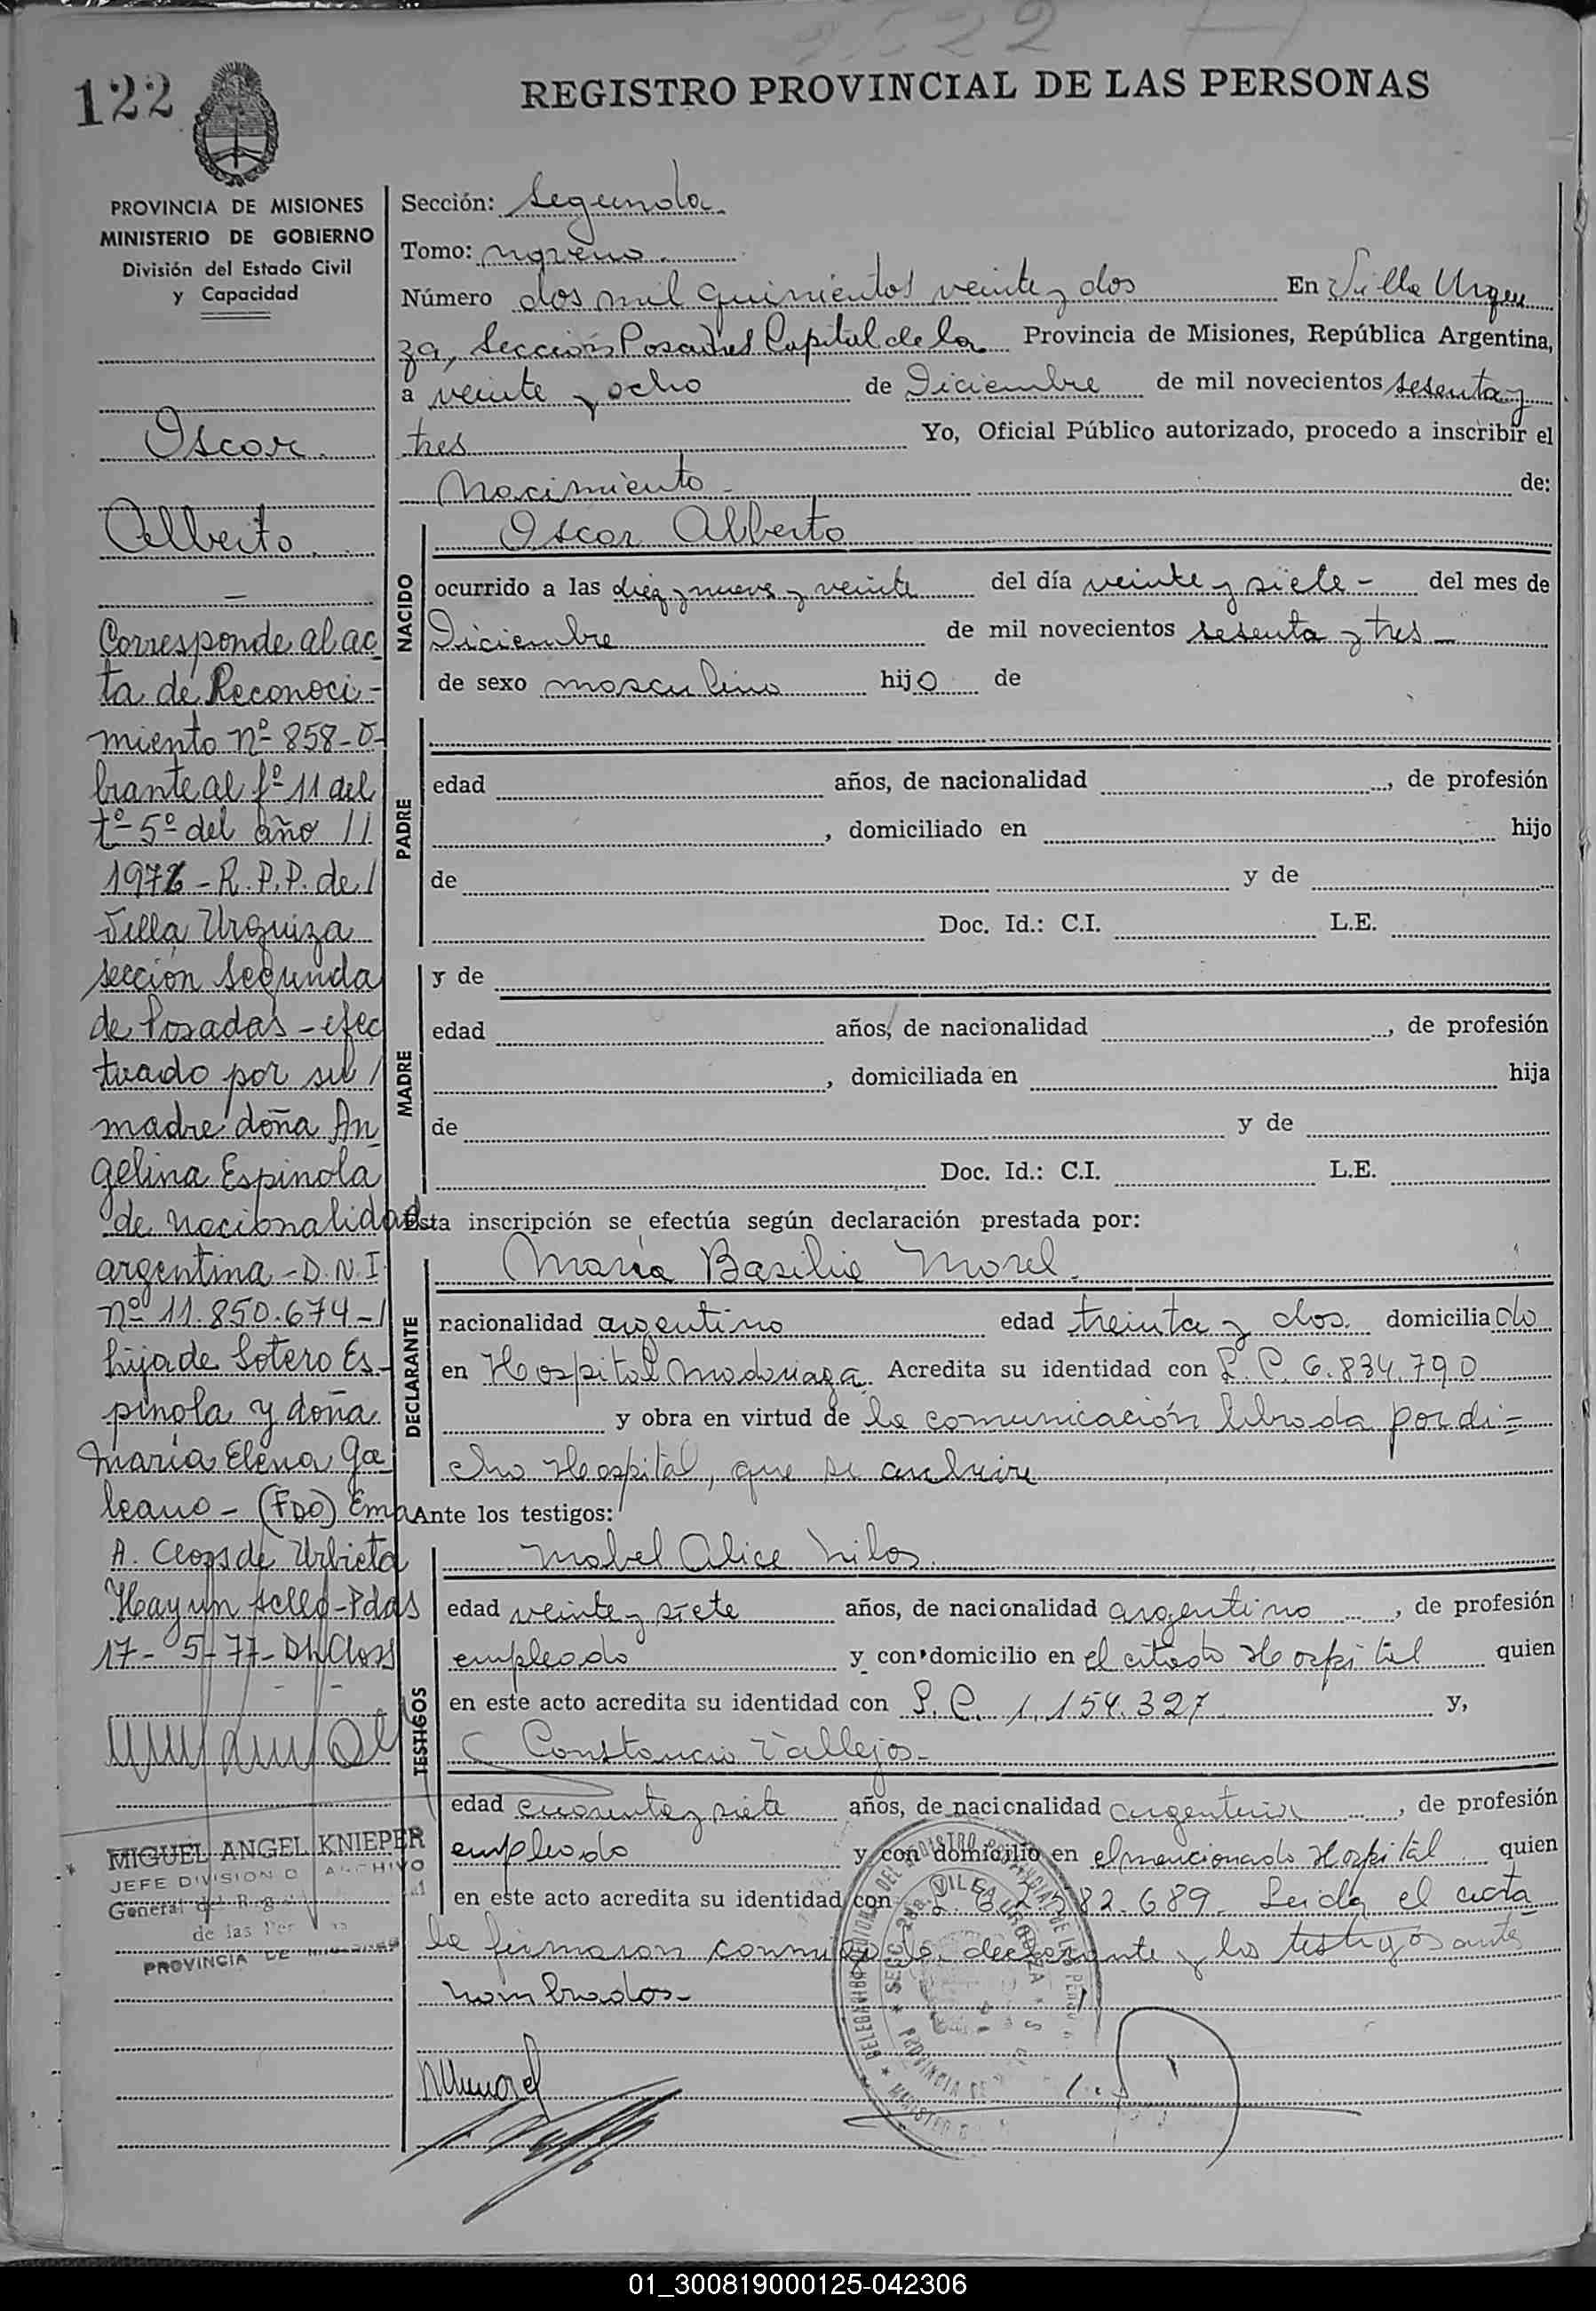 2522
122
REGISTRO PROVINCIAL DE LAS PERSONAS
PROVINCIA DE MISIONES
MINISTERIO DE GOBIERNO
División del Estado Civil
y Capacidad
Oscar
Alberto
Corresponde al ac
ta de Reconoci-
miento nº 858-O-
brante al fº 11 del
tº 5º del año //
1977 - R.P.P. de /
Villa Urquiza
sección Segunda
de Posadas - efec
tuado por su /
madre doña An
gelina Espinola
de nacionalidad
argentina - D.N.I
nº 11.850.674 - /
hija de Sotero Es-
pinola y doña
María Elena Ga
leano - (FDO) Ema
A. Closs de Urbieta
Hay un sello - Pdas
17 - 5 - 77 - Dh Closs
MIGUEL ANGEL KNIEPER
JEFE DIVISION ARCHIVO
General del
de las
PROVINCIA DE MISIONES
Sección: Segunda
Tomo: noveno
Número dos mil quinientos veinte y dos En Villa Urqui
za, Sección Posadas Capital de la Provincia de Misiones, República Argentina,
a veinte y ocho de Diciembre de mil novecientos sesenta y
tres Yo, Oficial Público autorizado, procedo a inscribir el
Nacimiento - de:
NACIDO
Oscar Alberto
ocurrido a las diez y nueve y veinte del día veinte y siete - del mes de
Diciembre de mil novecientos sesenta y tres -
de sexo masculino hijo de
PADRE
edad años, de nacionalidad , de profesión
, domiciliado en hijo
de y de
Doc. Id.: C.I. L.E.
MADRE
y de
edad años, de nacionalidad , de profesión
, domiciliada en hija
de y de
Doc. Id.: C.I. L.E.
Esta inscripción se efectúa según declaración prestada por:
DECLARANTE
María Basilia Morel
nacionalidad argentina edad treinta y dos domiciliado
en Hospital Madariaga. Acredita su identidad con L.C. 6.834.790
y obra en virtud de la comunicación librada por di-
cho Hospital, que se archiva
Ante los testigos:
TESTIGOS
Mabel Alice
edad veinte y siete años, de nacionalidad argentina , de profesión
empleada y con domicilio en el citado Hospital quien
en este acto acredita su identidad con L.C. 1.154.327 y,
Constancio Vallejos -
edad cuarenta y siete años, de nacionalidad argentina , de profesión
empleado y con domicilio en el mencionado Hospital quien
en este acto acredita su identidad con 82.689. Leida el acta
la firmaron conmigo la declarante y los testigos ante
nombrados -
MMorel
01_300819000125-042306